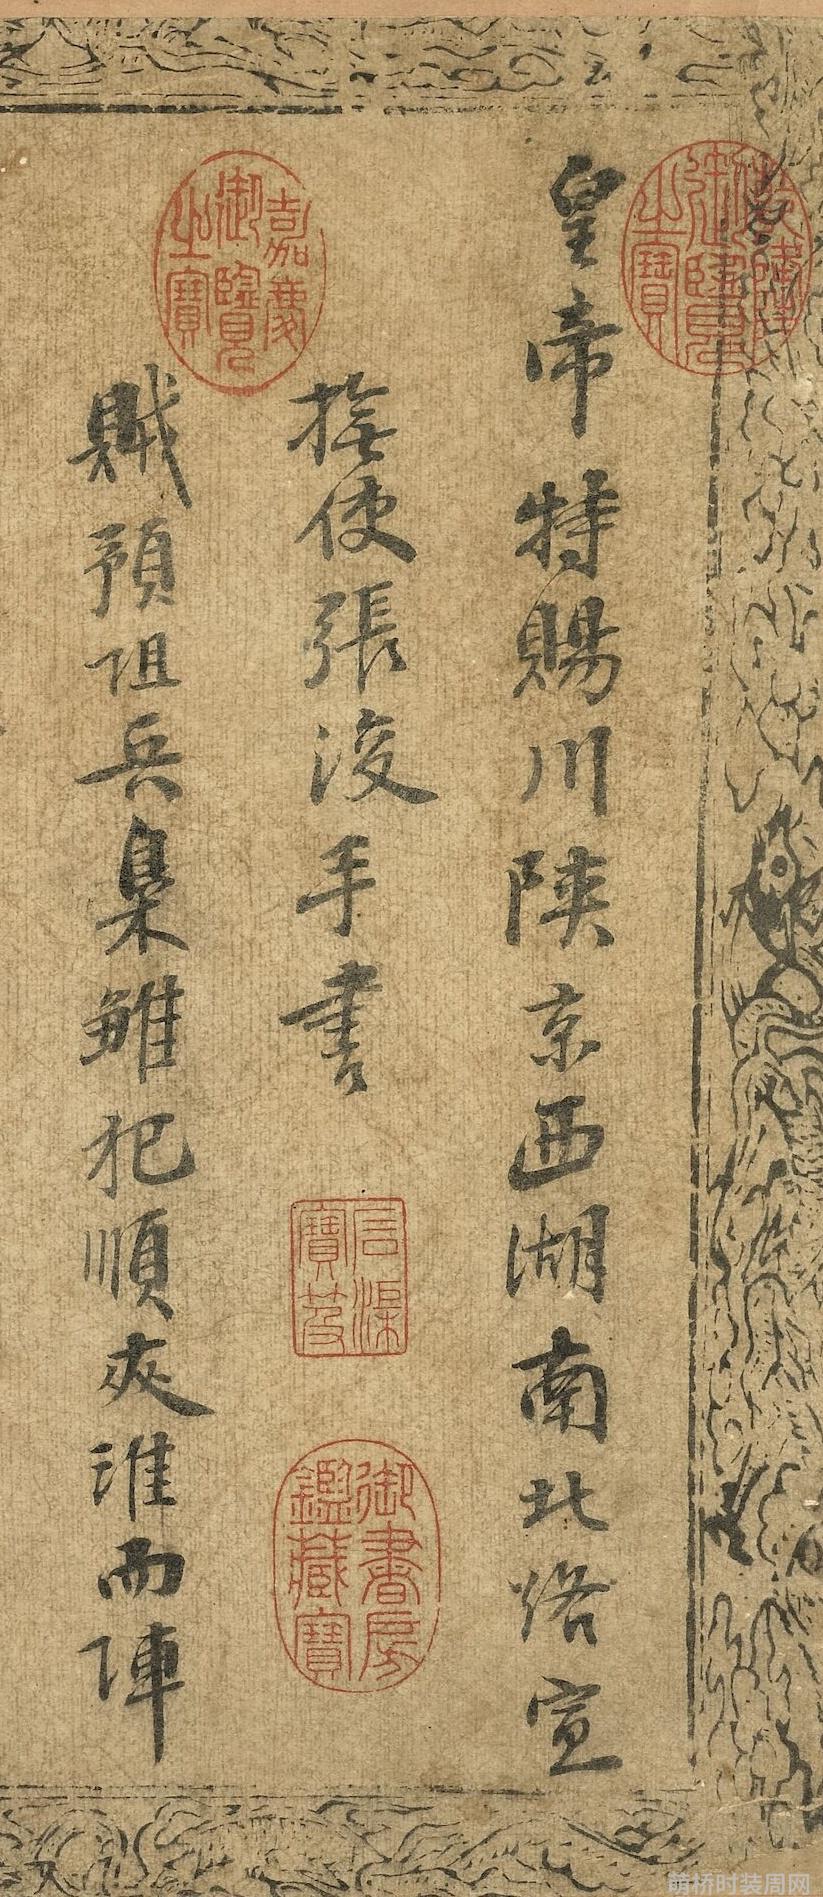 皇帝特賜川陝京西湖南北路宣
撫使張浚手書
賊預阻兵梟雛犯順夾淮而陣
乾隆御覽之寶
嘉慶御覽之寶
石渠寶笈
御書房鑑藏寶
萌桥时装周网